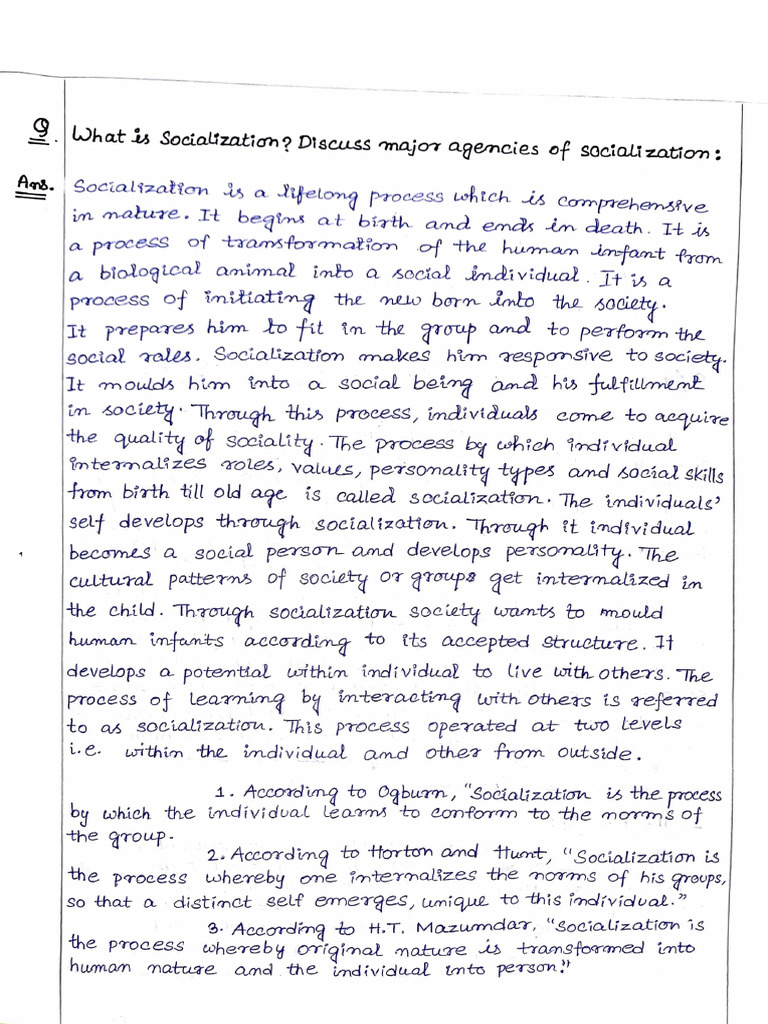 Q. What is Socialization? Discuss major agencies of socialization:
Ans. Socialization is a lifelong process which is comprehensive
in nature. It begins at birth and ends in death. It is
a process of transformation of the human infant from
a biological animal into a social individual. It is a
process of initiating the new born into the society.
It prepares him to fit in the group and to perform the
social roles. Socialization makes him responsive to society.
It moulds him into a social being and his fulfillment
in society. Through this process, individuals come to acquire
the quality of sociality. The process by which individual
internalizes roles, values, personality types and social skills
from birth till old age is called socialization. The individuals'
self develops through socialization. Through it individual
becomes a social person and develops personality. The
cultural patterns of society or groups get internalized in
the child. Through socialization society wants to mould
human infants according to its accepted structure. It
develops a potential within individual to live with others. The
process of learning by interacting with others is referred
to as socialization. This process operated at two levels
i.e. within the individual and other from outside.
1. According to Ogburn, "Socialization is the process
by which the individual learns to conform to the norms of
the group.
2. According to Horton and Hunt, "Socialization is
the process whereby one internalizes the norms of his groups,
so that a distinct self emerges, unique to this individual."
3. According to H.T. Mazumdar, "Socialization is
the process whereby original nature is transformed into
human nature and the individual into person."